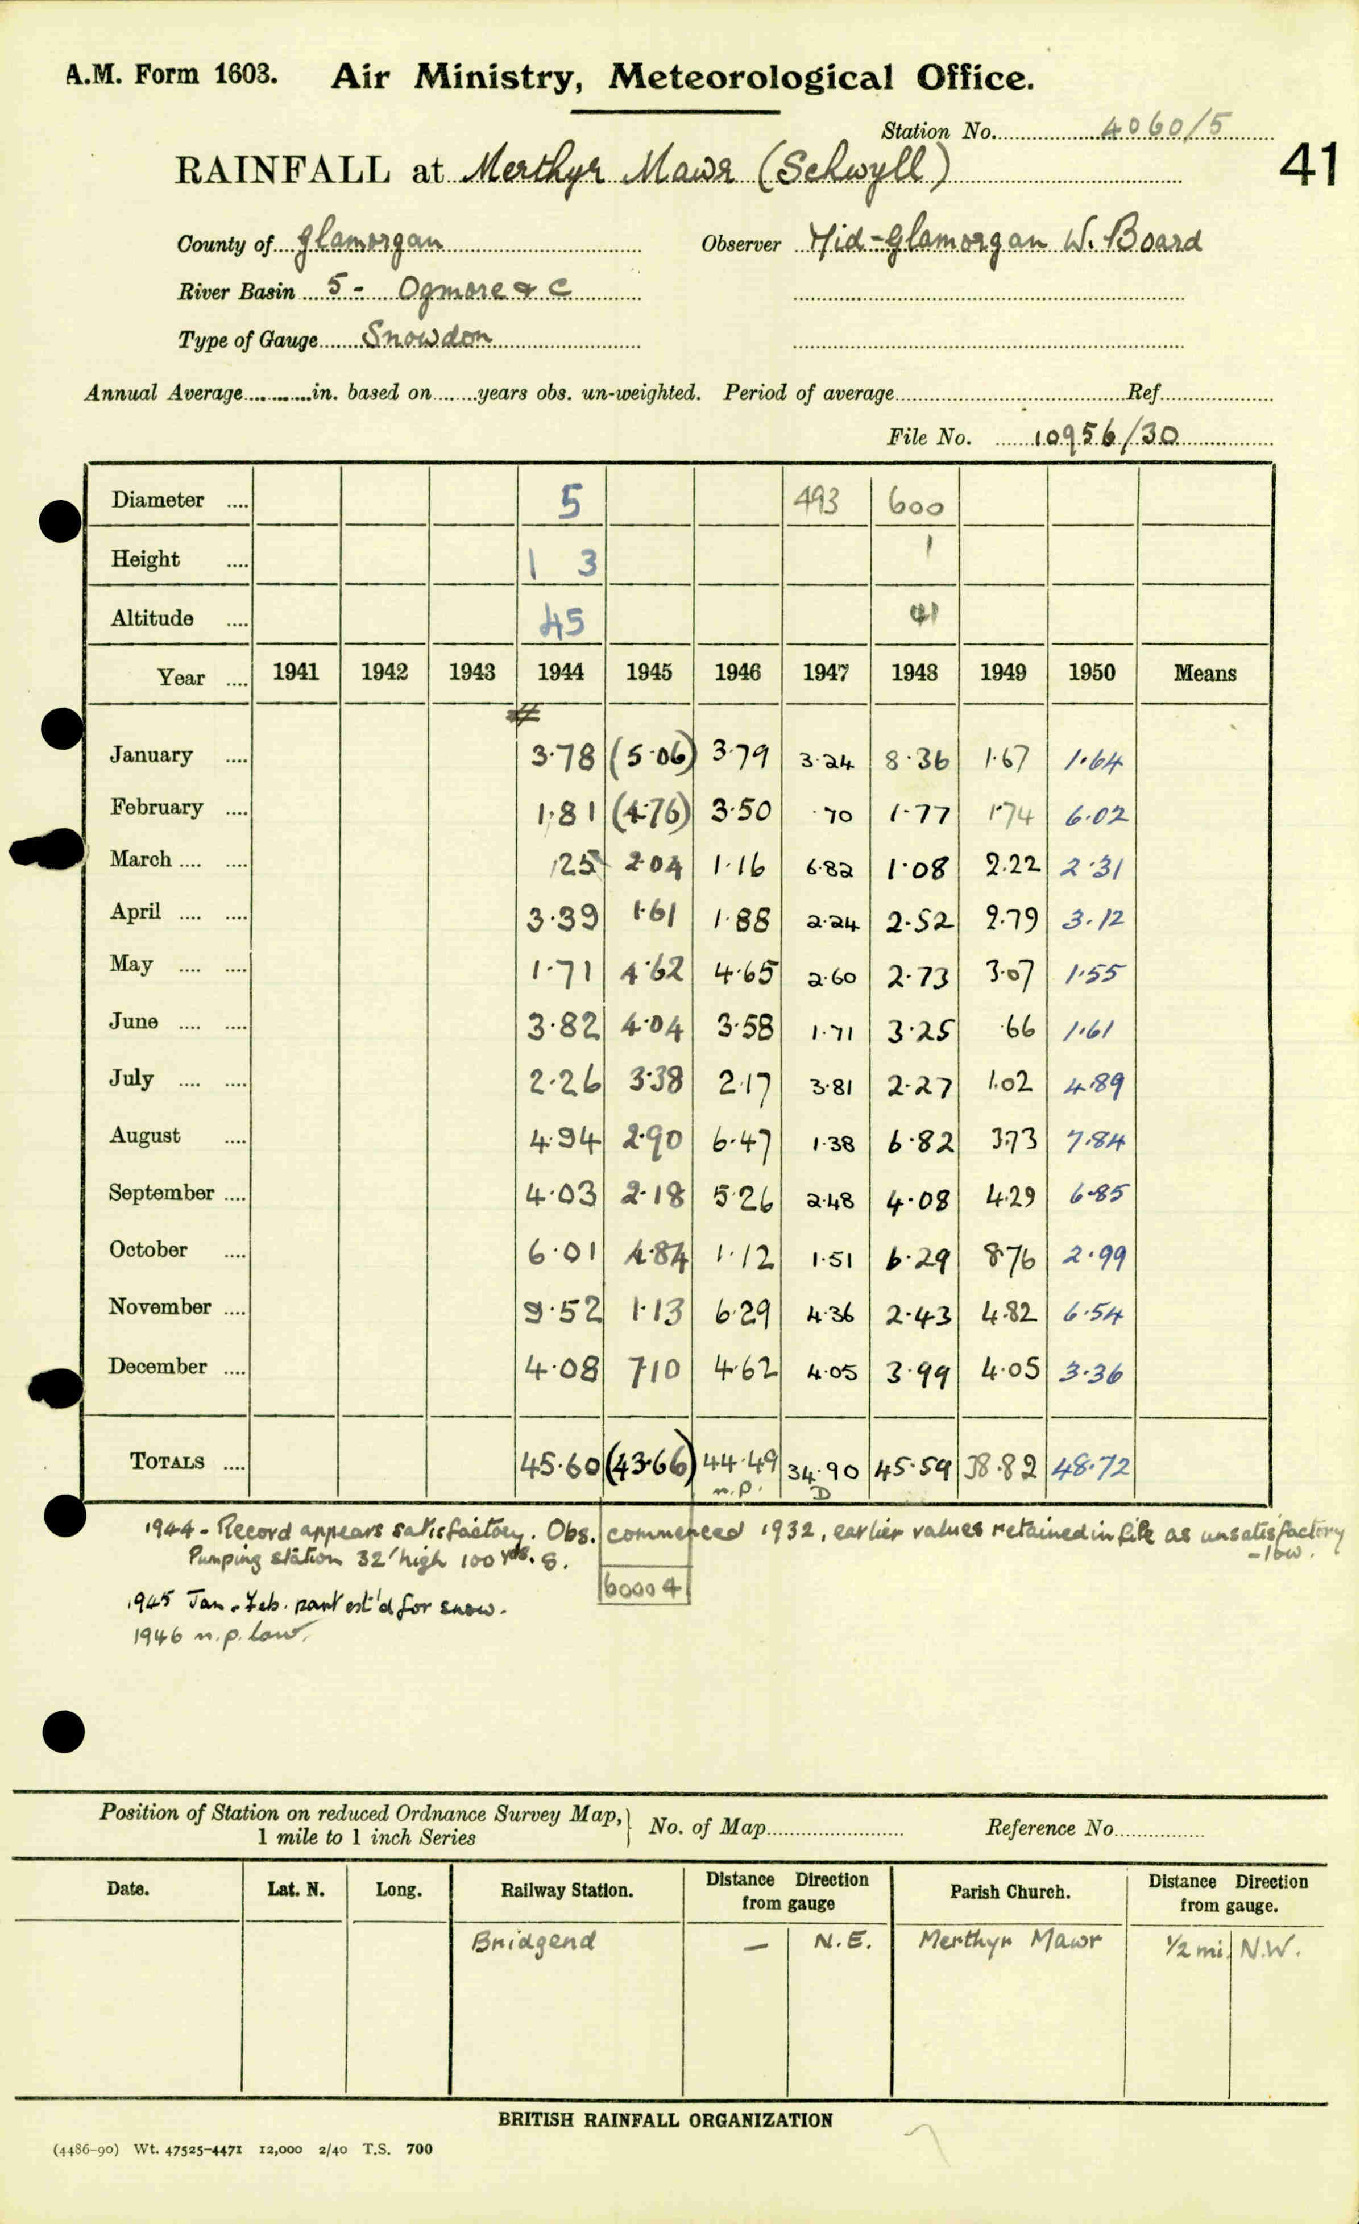 A.M. Form 1603. Air Ministry, Meteorological Office.
Station No. 4060/5
41
RAINFALL at Merthyr Mawr (Schwyll)
County of Glamorgan Observer Mid-Glamorgan W. Board
River Basin 5 - Ogmore & C
Type of Gauge Snowdon
Annual Average in. based on years obs. un-weighted. Period of average Ref.
File No. 10956/30
Diameter .... 5 493 600
Height .... 1 3 1
Altitude .... 45 41
Year .... 1941 1942 1943 1944 1945 1946 1947 1948 1949 1950 Means
January .... 3·78 (5·06) 3·79 3·24 8·36 1·67 1·64
February .... 1·81 (4·76) 3·50 ·70 1·77 1·74 6·02
March .... .... ·25 2·04 1·16 6·82 1·08 2·22 2·31
April .... .... 3·39 1·61 1·88 2·24 2·52 2·79 3·12
May .... .... 1·71 4·62 4·65 2·60 2·73 3·07 1·55
June .... .... 3·82 4·04 3·58 1·71 3·25 ·66 1·61
July .... .... 2·26 3·38 2·17 3·81 2·27 1·02 4·89
August .... 4·94 2·90 6·47 1·38 6·82 3·73 7·84
September .... 4·03 2·18 5·26 2·48 4·08 4·29 6·85
October .... 6·01 4·84 1·12 1·51 6·29 8·76 2·99
November .... 9·52 1·13 6·29 4·36 2·43 4·82 6·54
December .... 4·08 7·10 4·62 4·05 3·99 4·05 3·36
TOTALS .... 45·60 (43·66) 44·49 34·90 45·59 38·82 48·72
n.p. D
1944 - Record appears satisfactory. Obs. commenced 1932, earlier values retained in file as unsatisfactory
- low.
Pumping station 32' high 100 yds. S.
60004
1945 Jan - Feb. part est'd for snow.
1946 n.p. low.
Position of Station on reduced Ordnance Survey Map,
1 mile to 1 inch Series
No. of Map Reference No.
Date. Lat. N. Long. Railway Station. Distance Direction from gauge Parish Church. Distance Direction from gauge.
Bridgend — N.E. Merthyr Mawr 1/2 mi. N.W.
BRITISH RAINFALL ORGANIZATION
(4486-90) Wt. 47525-4471 12,000 2/40 T.S. 700